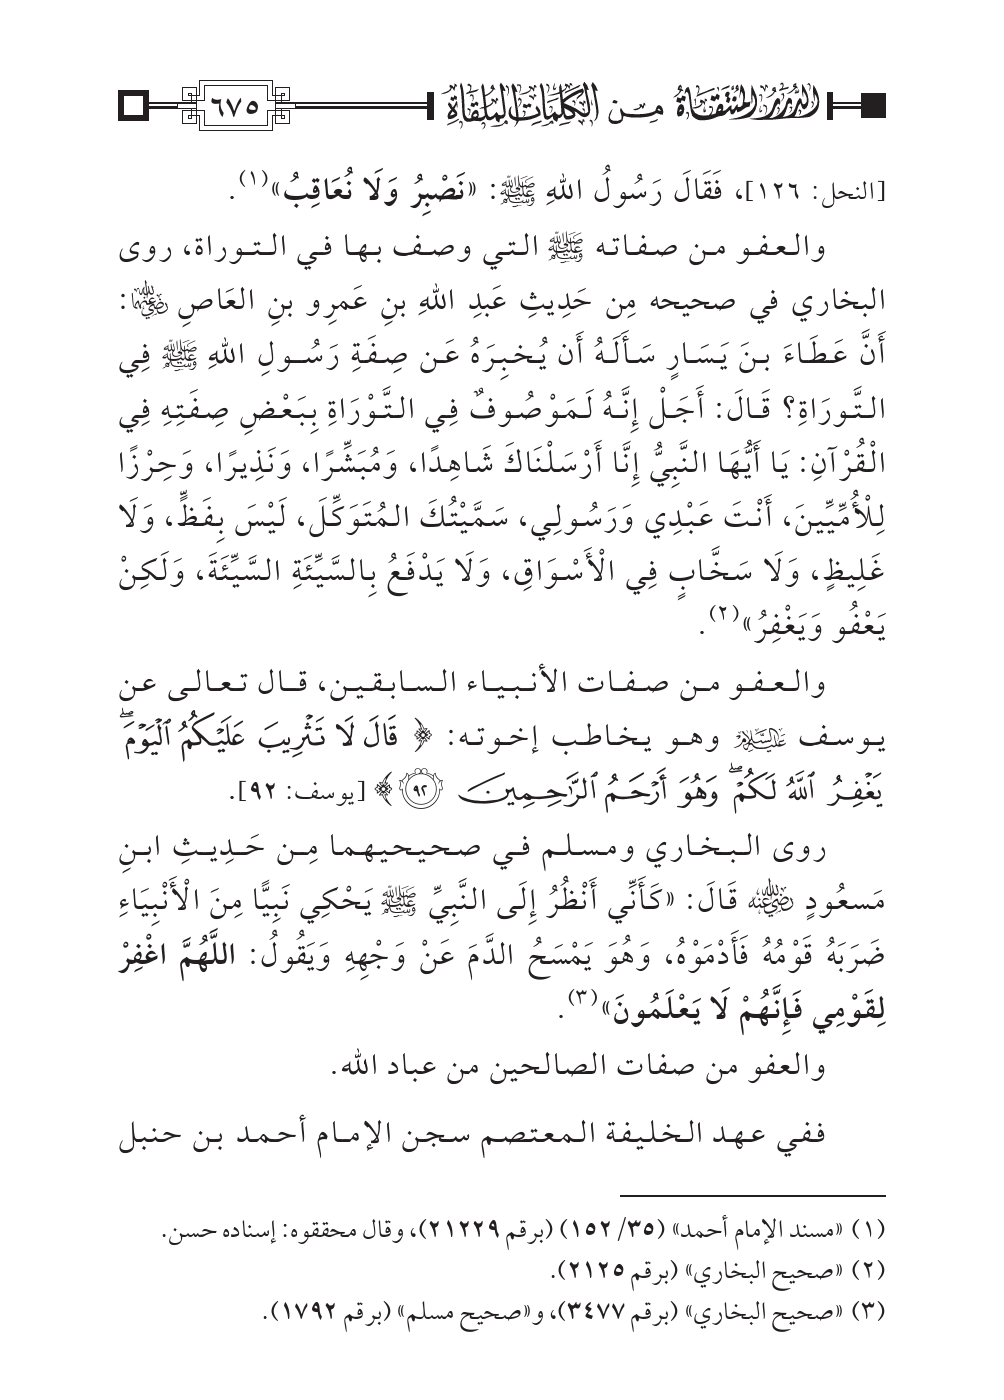 الدُّرَرُ المُنْتَقَاةُ مِـن الكَلِمَاتِ المُلْقَاةِ ٦٧٥
[النحل: ١٢٦]، فَقَالَ رَسُولُ اللهِ ﷺ: «نَصْبِرُ وَلَا نُعَاقِبُ»(١).
والعفو من صفاته ﷺ التي وصف بها في التوراة، روى
البخاري في صحيحه مِن حَدِيثِ عَبدِ اللهِ بنِ عَمرِو بنِ العَاصِ رضي الله عنهما:
أَنَّ عَطَاءَ بنَ يَسَارٍ سَأَلَهُ أَن يُخبِرَهُ عَن صِفَةِ رَسُولِ اللهِ ﷺ فِي
التَّورَاةِ؟ قَالَ: أَجَلْ إِنَّهُ لَمَوْصُوفٌ فِي التَّوْرَاةِ بِبَعْضِ صِفَتِهِ فِي
الْقُرْآنِ: يَا أَيُّهَا النَّبِيُّ إِنَّا أَرْسَلْنَاكَ شَاهِدًا، وَمُبَشِّرًا، وَنَذِيرًا، وَحِرْزًا
لِلْأُمِّيِّينَ، أَنْتَ عَبْدِي وَرَسُولِي، سَمَّيْتُكَ المُتَوَكِّلَ، لَيْسَ بِفَظٍّ، وَلَا
غَلِيظٍ، وَلَا سَخَّابٍ فِي الْأَسْوَاقِ، وَلَا يَدْفَعُ بِالسَّيِّئَةِ السَّيِّئَةَ، وَلَكِنْ
يَعْفُو وَيَغْفِرُ»(٢).
والعفو من صفات الأنبياء السابقين، قال تعالى عن
يوسف عليه السلام وهو يخاطب إخوته: ﴿ قَالَ لَا تَثْرِيبَ عَلَيْكُمُ ٱلْيَوْمَۖ
يَغْفِرُ ٱللَّهُ لَكُمْۖ وَهُوَ أَرْحَمُ ٱلرَّاحِمِينَ ٩٢ ﴾ [يوسف: ٩٢].
روى البخاري ومسلم في صحيحيهما مِن حَدِيثِ ابنِ
مَسعُودٍ رضي الله عنه قَالَ: «كَأَنِّي أَنْظُرُ إِلَى النَّبِيِّ ﷺ يَحْكِي نَبِيًّا مِنَ الْأَنْبِيَاءِ
ضَرَبَهُ قَوْمُهُ فَأَدْمَوْهُ، وَهُوَ يَمْسَحُ الدَّمَ عَنْ وَجْهِهِ وَيَقُولُ: اللَّهُمَّ اغْفِرْ
لِقَوْمِي فَإِنَّهُمْ لَا يَعْلَمُونَ»(٣).
والعفو من صفات الصالحين من عباد الله.
ففي عهد الخليفة المعتصم سجن الإمام أحمد بن حنبل
(١) «مسند الإمام أحمد» (٣٥/ ١٥٢) (برقم ٢١٢٢٩)، وقال محققوه: إسناده حسن.
(٢) «صحيح البخاري» (برقم ٢١٢٥).
(٣) «صحيح البخاري» (برقم ٣٤٧٧)، و«صحيح مسلم» (برقم ١٧٩٢).